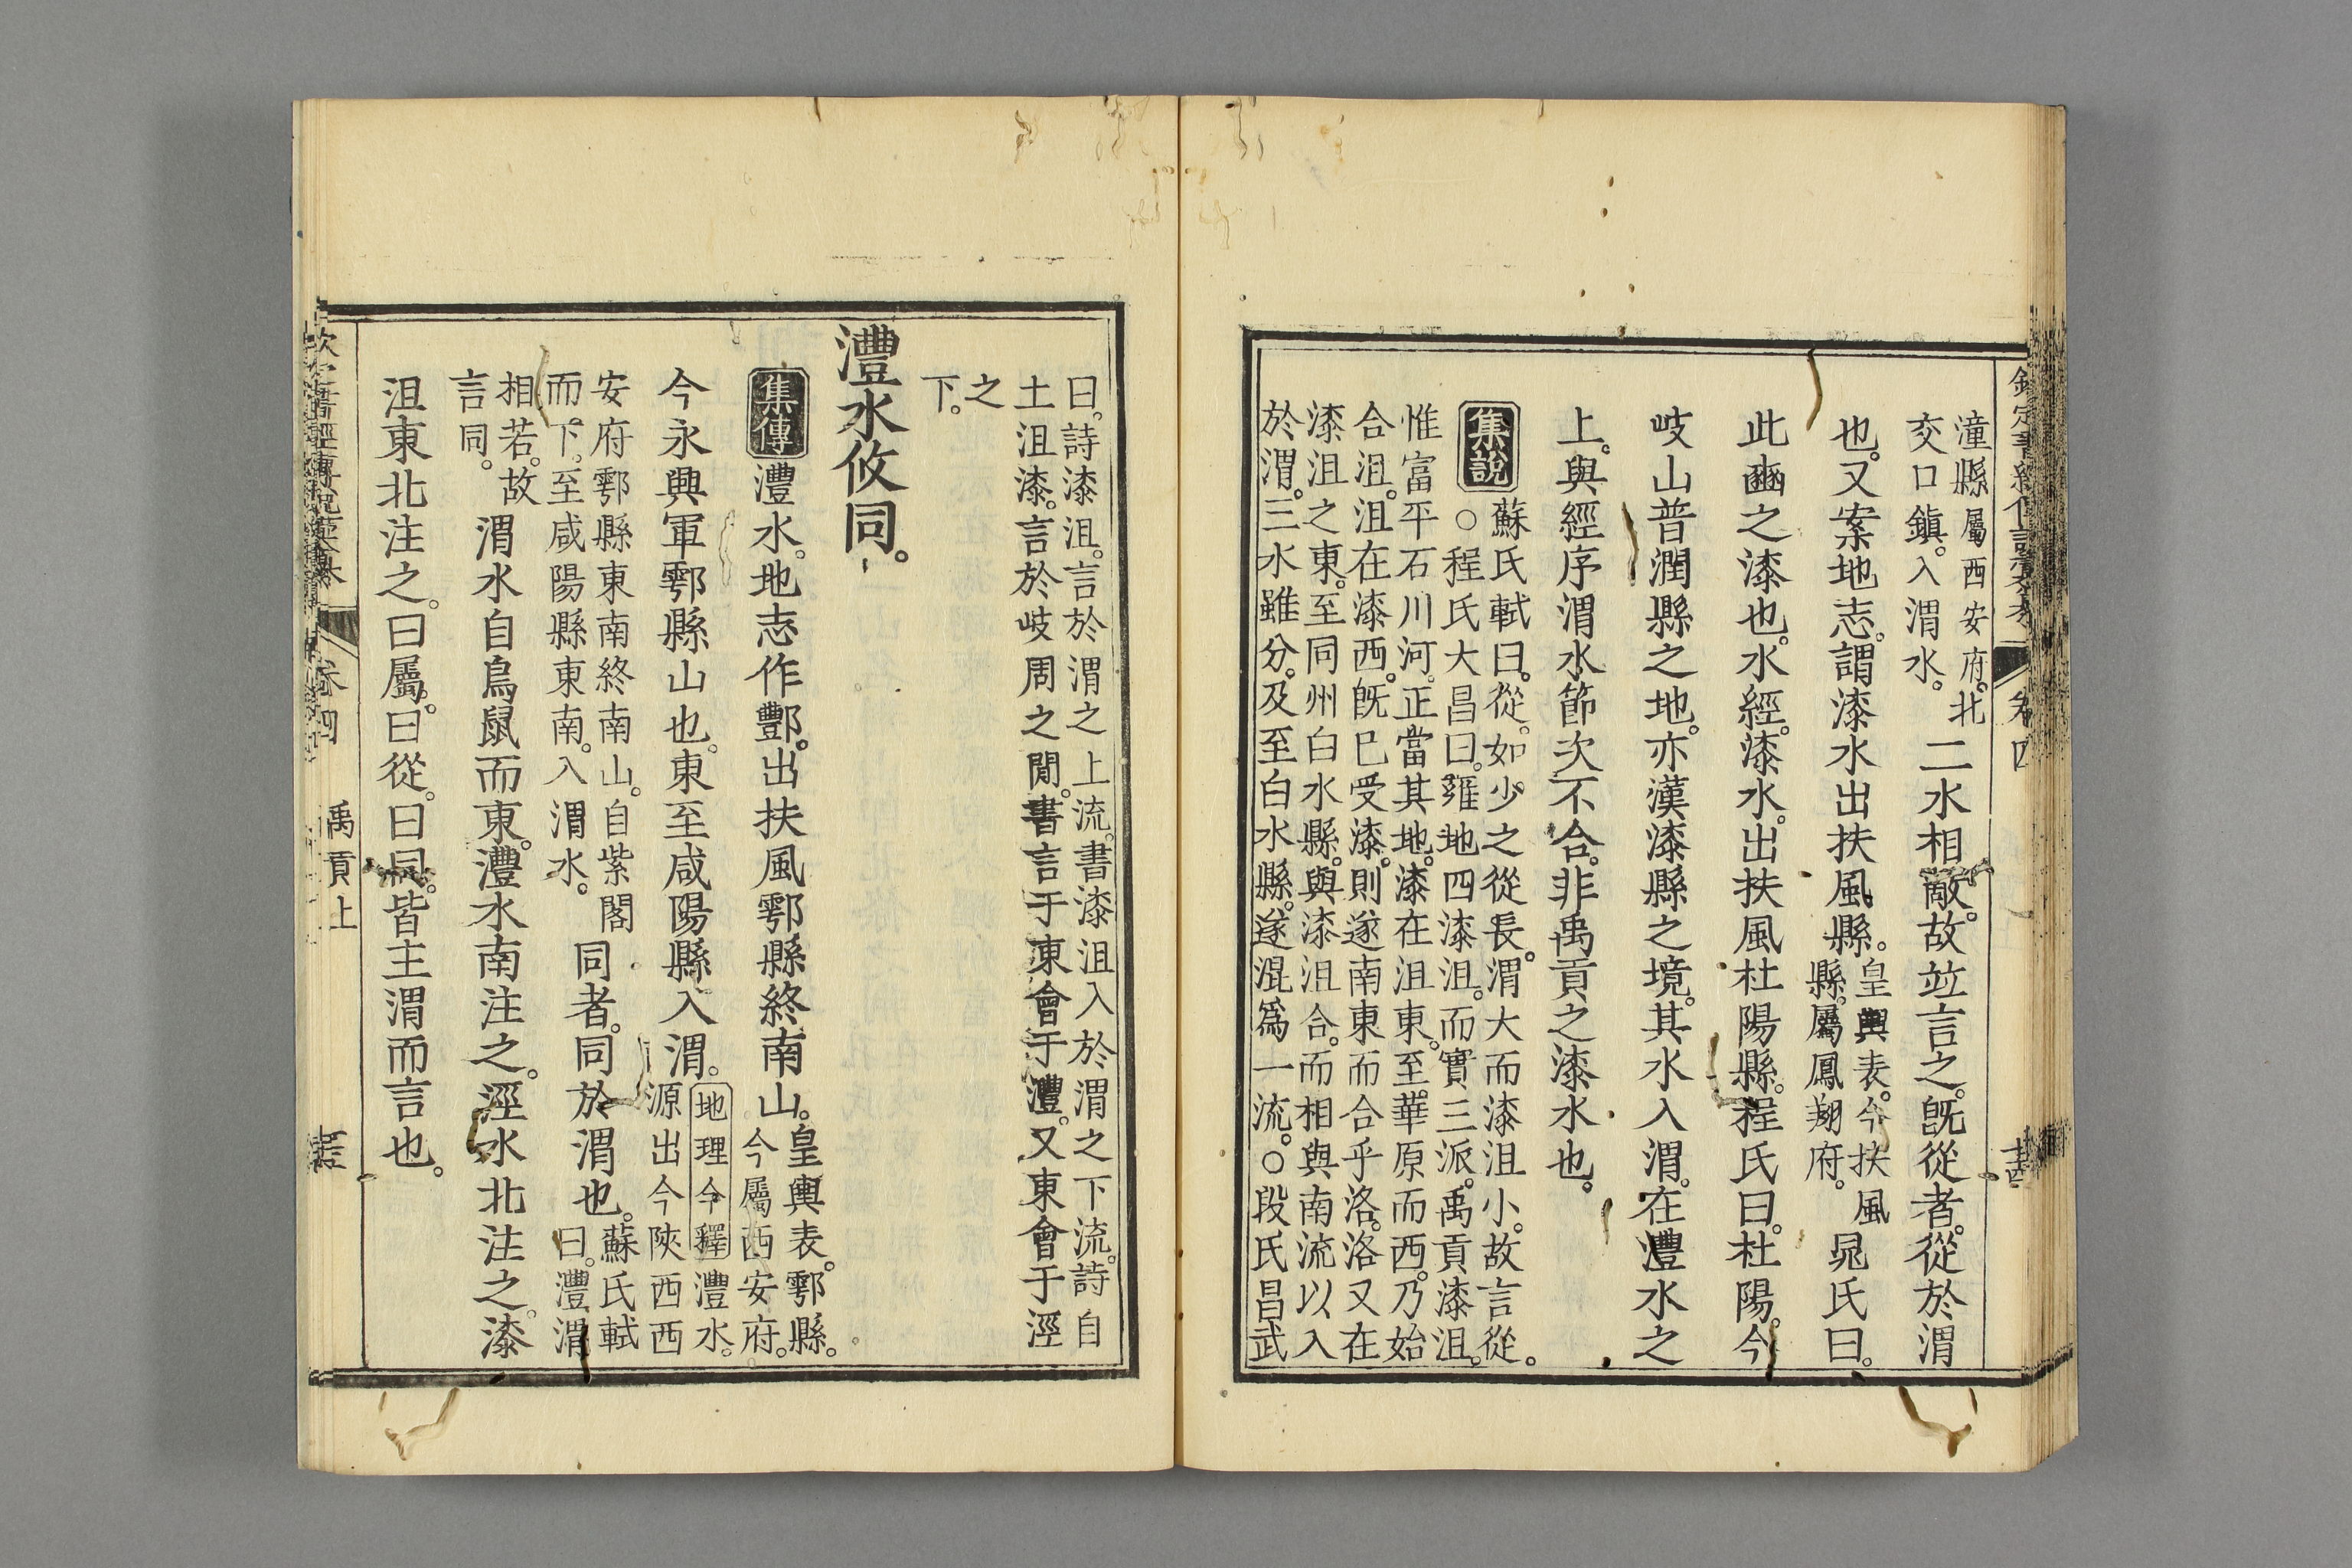 潼縣屬西安府。北
交口鎮。入渭水。
二水相敵。故竝言之。旣從者。從於渭
也。又案地志。謂漆水出扶風縣。
皇輿表。今扶風
縣。屬鳳翔府。
晁氏曰。
此豳之漆也。水經。漆水。出扶風杜陽縣。程氏曰。杜陽。今
岐山普潤縣之地。亦漢漆縣之境。其水入渭。在灃水之
上。與經序渭水節次不合。非禹貢之漆水也。
集說
蘇氏軾曰。從。如少之從長。渭大而漆沮小。故言從。
○程氏大昌曰。雍地四漆沮。而實三派。禹貢漆沮。
惟富平石川河。正當其地。漆在沮東。至華原而西。乃始
合沮。沮在漆西。旣已受漆。則遂南東而合乎洛。洛又在
漆沮之東。至同州白水縣。與漆沮合。而相與南流以入
於渭。三水雖分。及至白水縣。遂混爲一流。○段氏昌武
曰。詩漆沮。言於渭之上流。書漆沮入於渭之下流。詩自
土沮漆。言於岐周之閒。書言于東會于灃。又東會于涇
之
下。
灃水攸同。
集傳
灃水。地志作酆。出扶風鄠縣終南山。
皇輿表。鄠縣。
今屬西安府。
今永興軍鄠縣山也。東至咸陽縣入渭。
地理今釋
灃水。
源出今陝西西
安府鄠縣東南終南山。自紫閣
而下。至咸陽縣東南。入渭水。
同者。同於渭也。
蘇氏軾
曰。灃渭
相若。故
言同。
渭水自鳥鼠而東。灃水南注之。涇水北注之。漆
沮東北注之。曰屬。曰從。曰同。皆主渭而言也。
卷四
禹貢上